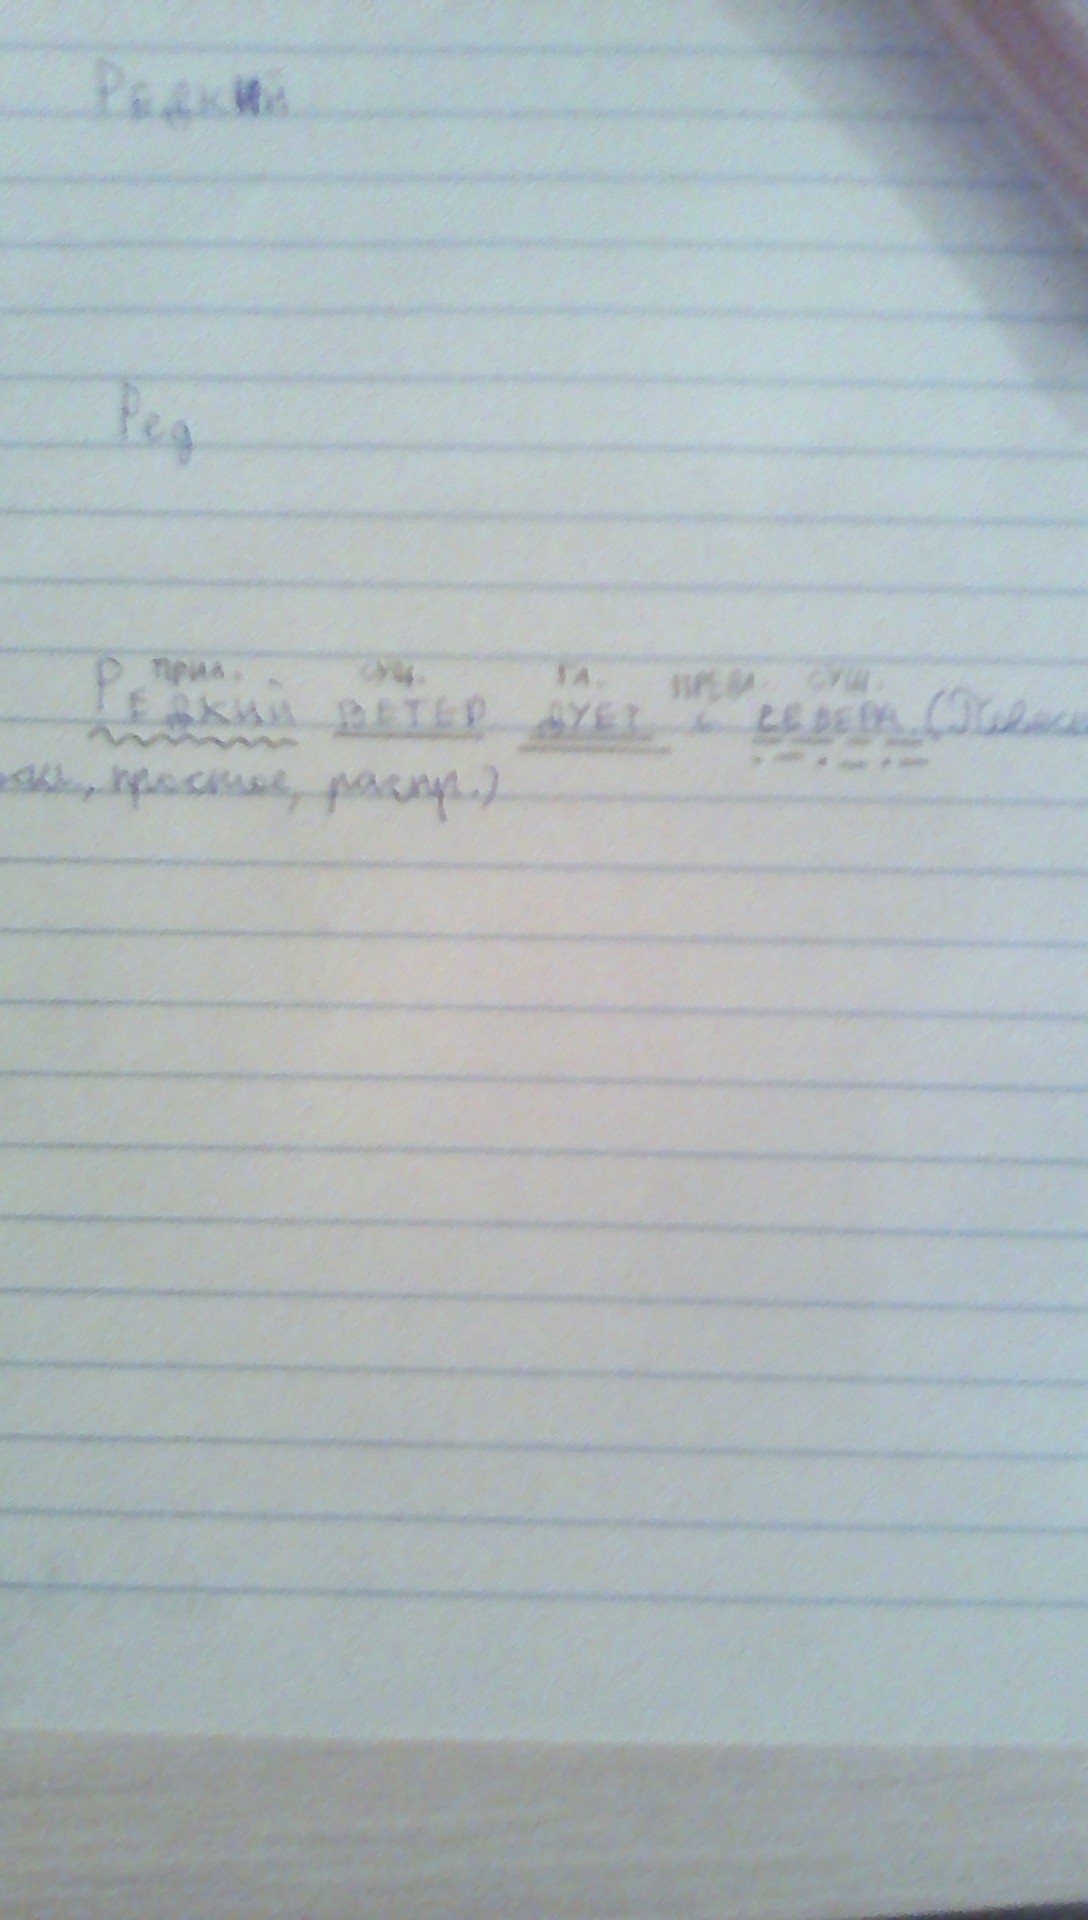 Редкий
Ред
прил. сущ. гл. предл. сущ.
Редкий ветер дует с севера. (
простое, распр.)